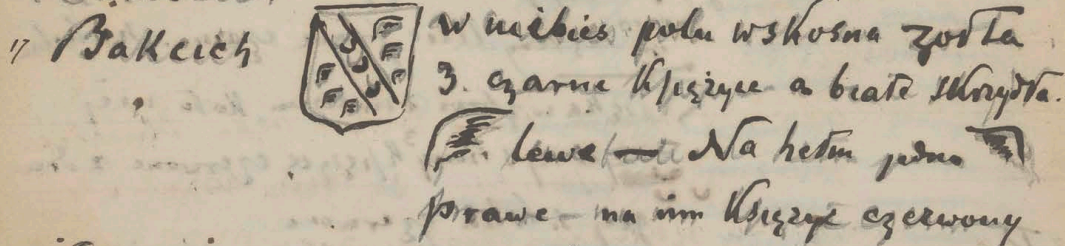 " Bakcich
w niebies polu wskosna żołta
3. czarne Księżyce a białe skrzydła.
lewe — Na hełm jedno
prawe na nim Księżyc czerwony